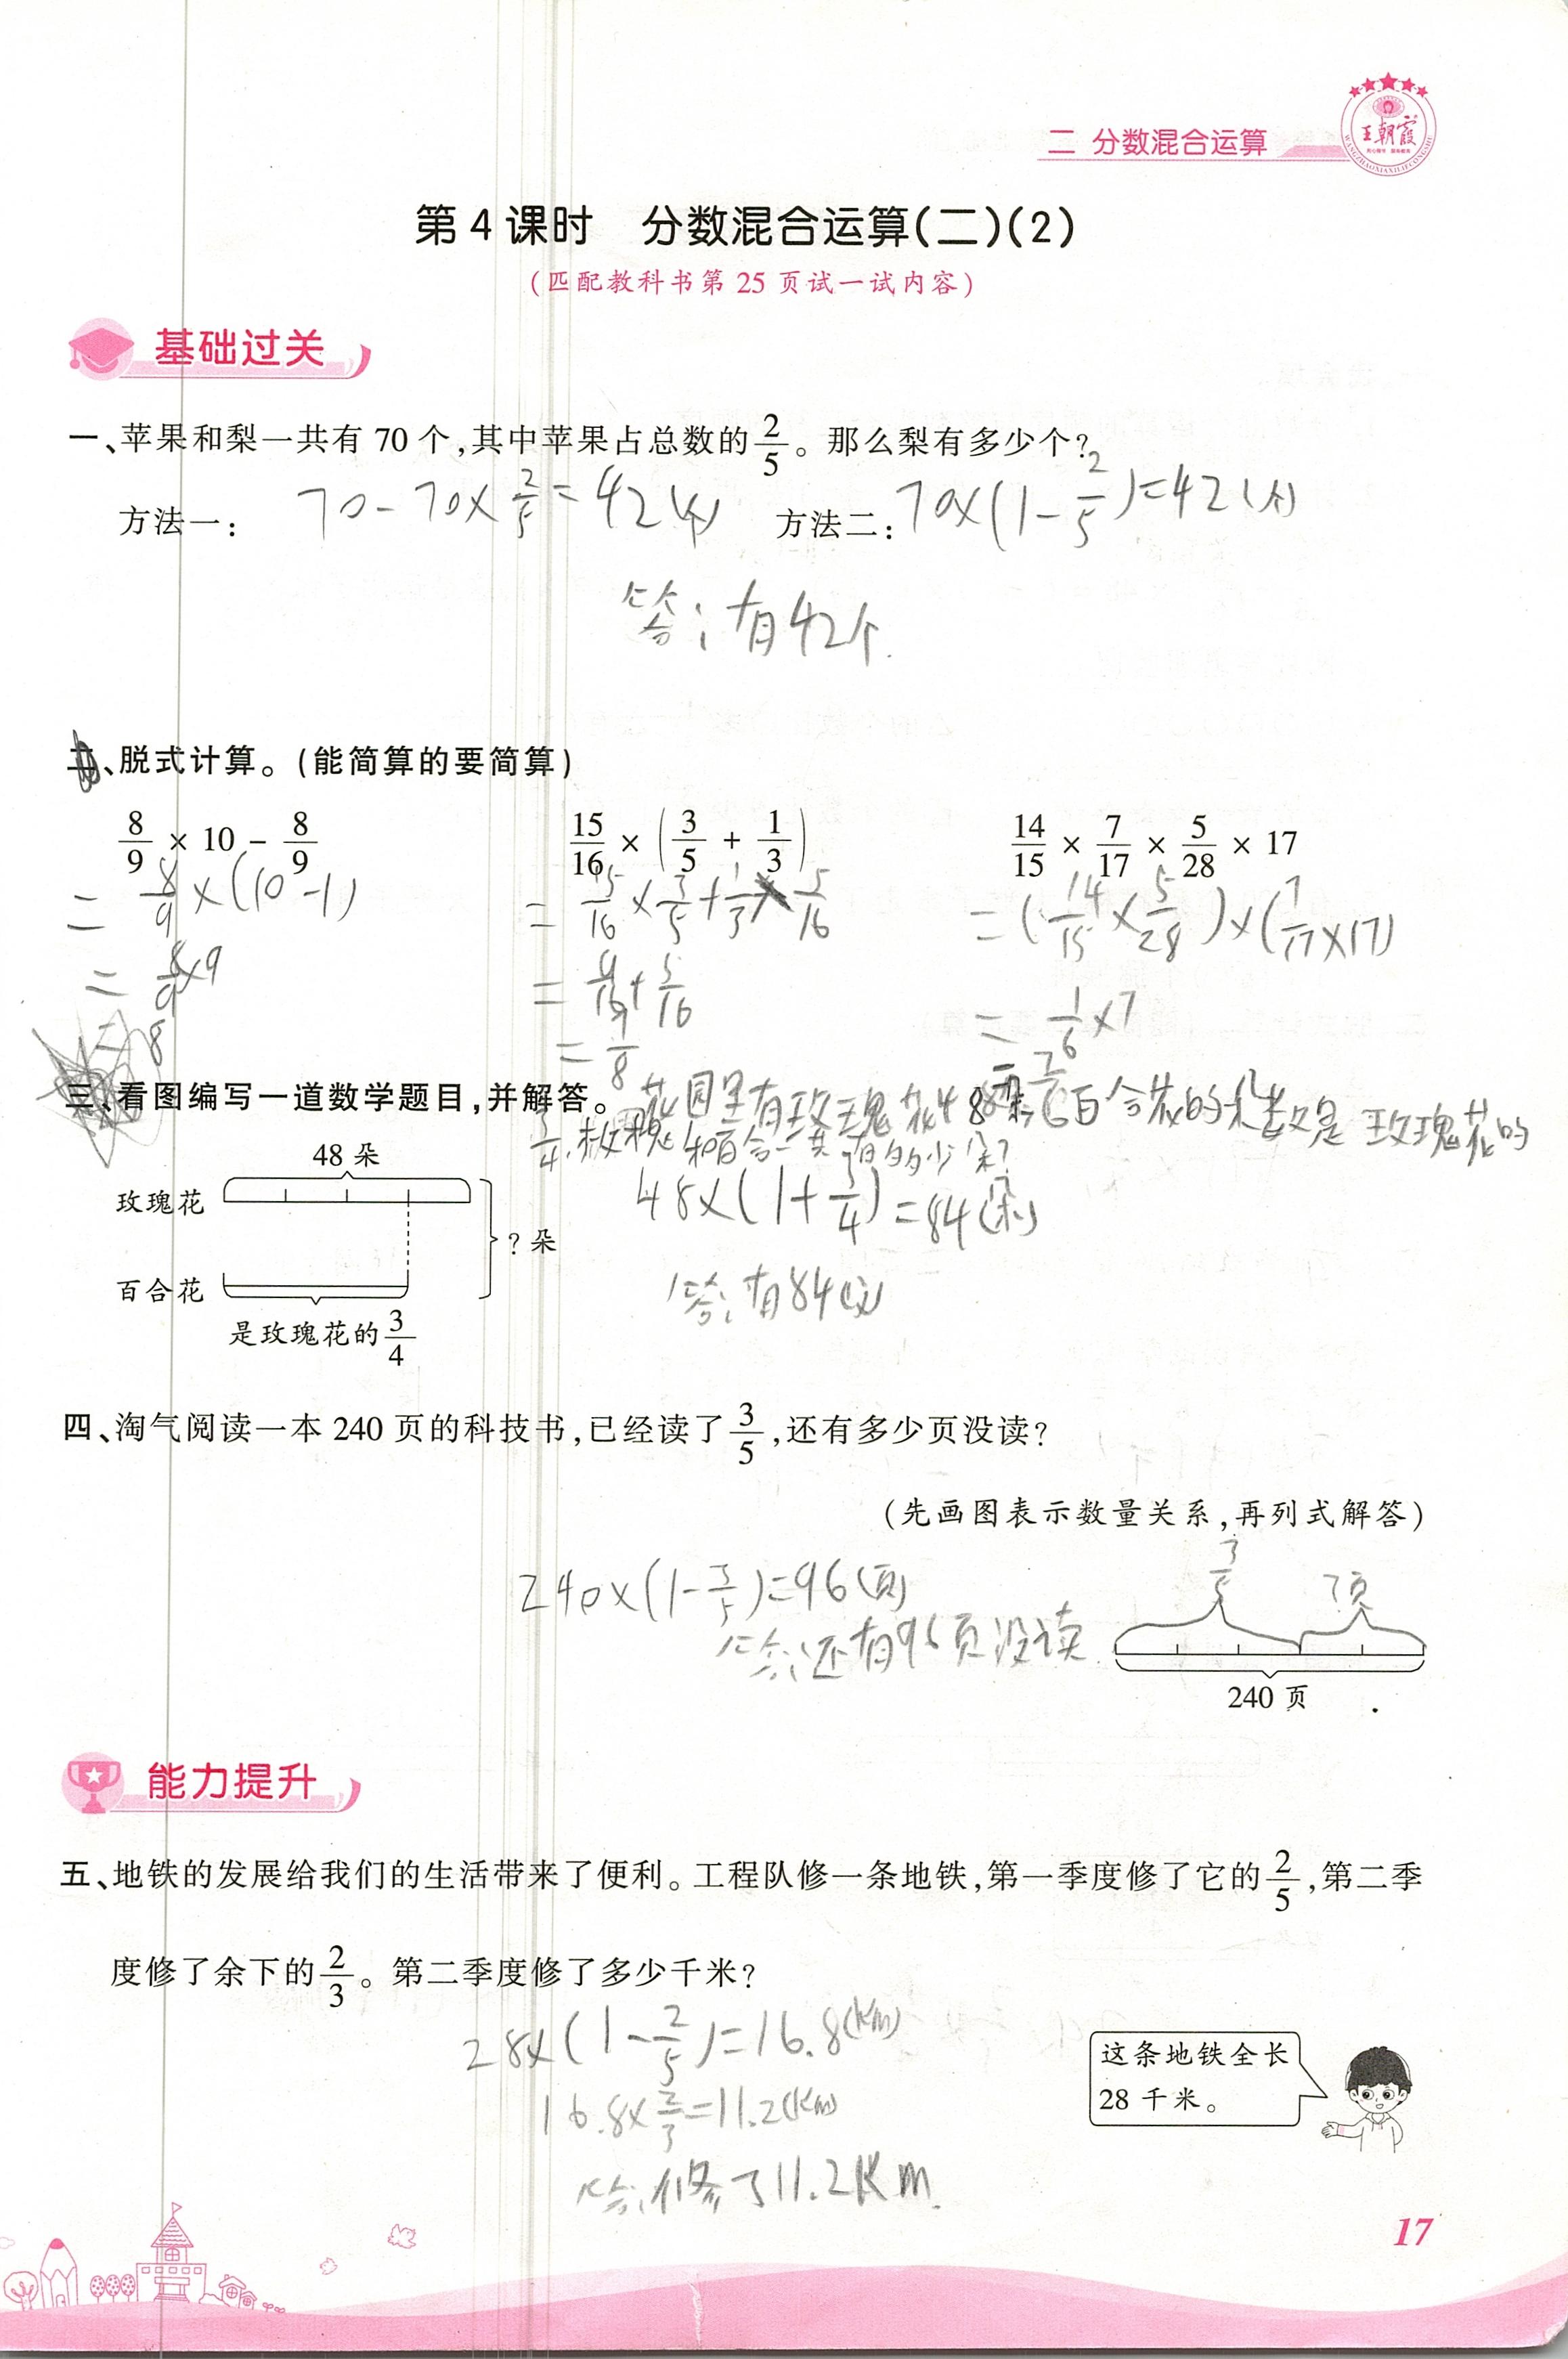 二 分数混合运算
王朝霞
第4课时 分数混合运算(二)(2)
(匹配教科书第25页试一试内容)
基础过关
一、苹果和梨一共有70个,其中苹果占总数的2/5。那么梨有多少个?
方法一: 70-70×2/5=42(个) 方法二: 70×(1-2/5)=42(个)
答:有42个.
二、脱式计算。(能简算的要简算)
8/9×10-8/9 15/16×(3/5+1/3) 14/15×7/17×5/28×17
=8/9×(10-1) =15/16×3/5+1/3×5/16 =(14/15×5/28)×(7/17×17)
=8/9×9 =9/16+5/16 =1/6×7
=8 =7/8 =7/6
三、看图编写一道数学题目,并解答。 花园里有玫瑰花48朵,百合花的朵数是玫瑰花的
3/4.玫瑰和百合一共有多少朵?
48朵
玫瑰花
48×(1+3/4)=84(朵)
?朵
百合花
答:有84
是玫瑰花的3/4
四、淘气阅读一本240页的科技书,已经读了3/5,还有多少页没读?
(先画图表示数量关系,再列式解答)
3/5 ?页
240×(1-3/5)=96(页)
答:还有96页没读.
240页
能力提升
五、地铁的发展给我们的生活带来了便利。工程队修一条地铁,第一季度修了它的2/5,第二季
度修了余下的2/3。第二季度修了多少千米?
28×(1-2/5)=16.8(km)
这条地铁全长
28千米。
16.8×2/3=11.2(km)
答:修了11.2km.
17